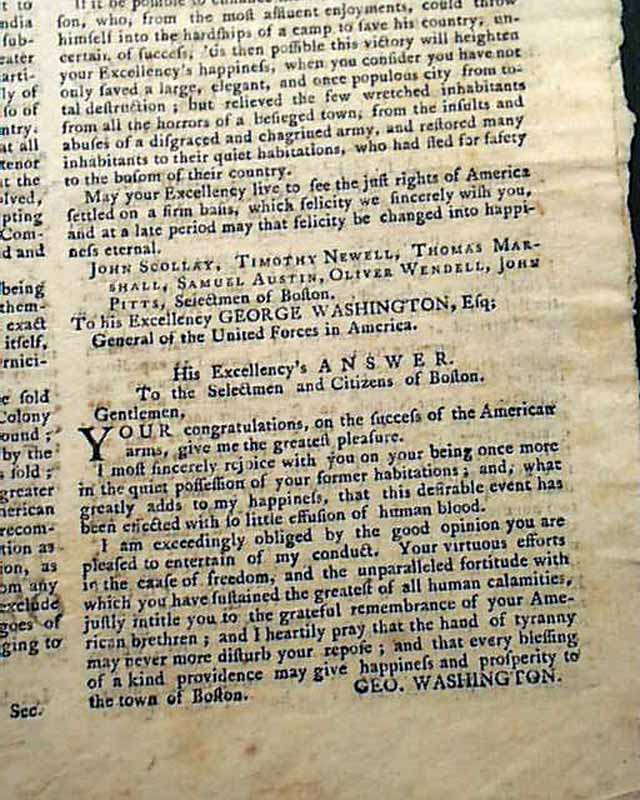 t to
ndia
sub-
eater
arti-
ly of
so of
ntry.
at all
tenor
t the
olved,
pting
Com-
d and
being
them-
exact
itself,
rnici-
e sold
Colony
ound ;
by the
s sold ;
greater
merican
recom-
tion as
ion, as
om any
exclude
goes of
ging to
Sec.
If it be possible to
son, who, from the most affluent enjoyments, could throw
himself into the hardships of a camp to save his country, un-
certain of success, 'tis then possible this victory will heighten
your Excellency's happiness, when you consider you have not
only saved a large, elegant, and once populous city from to-
tal destruction ; but relieved the few wretched inhabitants
from all the horrors of a besieged town, from the insults and
abuses of a disgraced and chagrined army, and restored many
inhabitants to their quiet habitations, who had fled for safety
to the bosom of their country.
May your Excellency live to see the just rights of America
settled on a firm basis, which felicity we sincerely wish you,
and at a late period may that felicity be changed into happi-
ness eternal.
JOHN SCOLLAY, TIMOTHY NEWELL, THOMAS MAR-
SHALL, SAMUEL AUSTIN, OLIVER WENDELL, JOHN
PITTS, Selectmen of Boston.
To his Excellency GEORGE WASHINGTON, Esq;
General of the United Forces in America.
His Excellency's ANSWER.
To the Selectmen and Citizens of Boston.
Gentlemen,
YOUR congratulations, on the success of the American
arms, give me the greatest pleasure.
I most sincerely rejoice with you on your being once more
in the quiet possession of your former habitations ; and, what
greatly adds to my happiness, that this desirable event has
been effected with so little effusion of human blood.
I am exceedingly obliged by the good opinion you are
pleased to entertain of my conduct. Your virtuous efforts
in the cause of freedom, and the unparalleled fortitude with
which you have sustained the greatest of all human calamities,
justly intitle you to the grateful remembrance of your Ame-
rican brethren ; and I heartily pray that the hand of tyranny
may never more disturb your repose ; and that every blessing
of a kind providence may give happiness and prosperity to
the town of Boston. GEO. WASHINGTON.